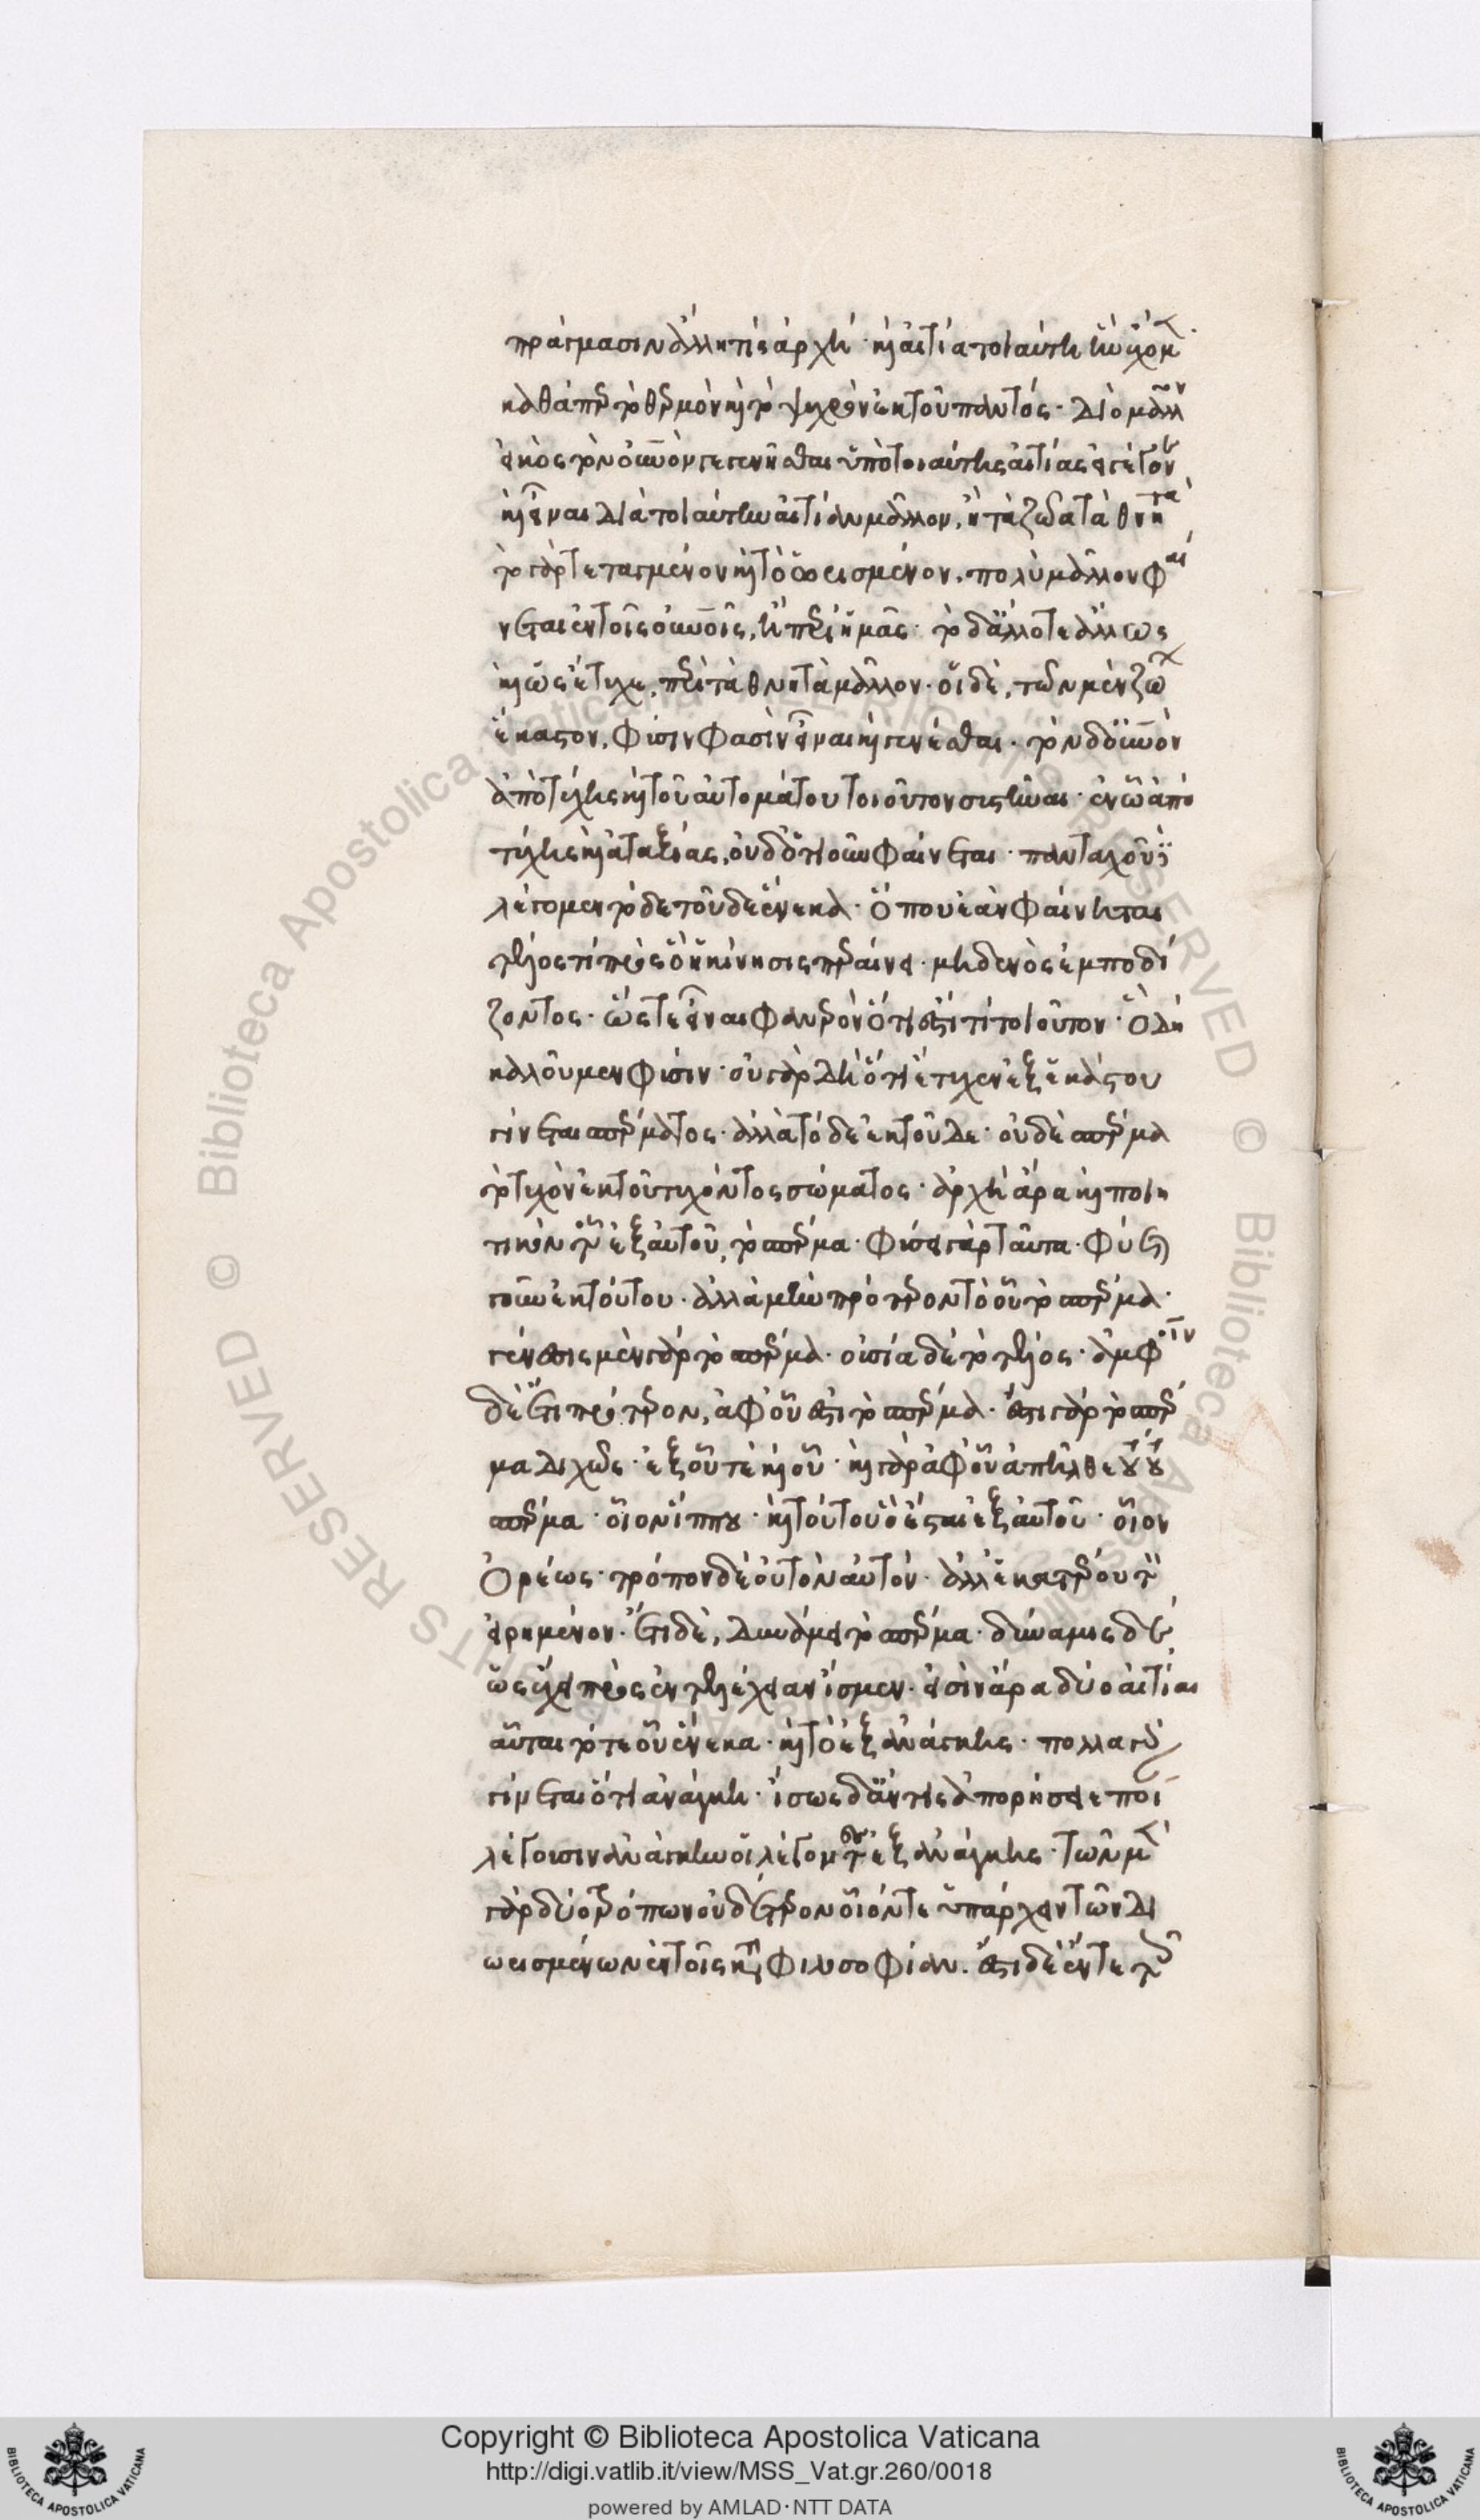 πράγμασιν ἄλλη τίς ἀρχὴ· καὶ αἰτία τοιαύτη ἣν ἔχομεν·
καθάπερ τὸ θερμὸν καὶ τὸ ψυχρὸν ἐκ τοῦ παντός· διὸ μᾶλλον
εἰκὸς τὸν οὐρανὸν γεγενῆσθαι ὑπὸ τοιαύτης αἰτίας εἰ γέγονε
καὶ εἶναι διὰ τοιαύτην αἰτίαν μᾶλλον, ἢ τὰ ζῶα τὰ θνητὰ
τὸ γὰρ τεταγμένον καὶ τὸ ὡρισμένον, πολὺ μᾶλλον φαί
νεται ἐν τοῖς οὐρανοῖς, ἢ περὶ ἡμᾶς· τὸ δ' ἄλλοτε ἄλλως
καὶ ὡς ἔτυχε, περὶ τὰ θνητὰ μᾶλλον· οἱ δὲ, τῶν μὲν ζώων
ἕκαστον, φύσιν φασὶν εἶναι καὶ γενέσθαι· τὸν δ' οὐρανὸν
ἀπὸ τύχης καὶ τοῦ αὐτομάτου τοιοῦτον συστῆναι· ἐν ᾧ ἀπὸ
τύχης καὶ ἀταξίας, οὐδ' ὁτιοῦν φαίνεται· πανταχοῦ δὲ
λέγομεν τόδε τοῦδε ἕνεκα· ὅπου ἐὰν φαίνηται
τέλος τί πρὸς ὃ ἡ κίνησις περαίνει· μηδενὸς ἐμποδί
ζοντος· ὥστε εἶναι φανερὸν ὅτι ἐστί τι τοιοῦτον· ὃ δὴ
καλοῦμεν φύσιν· οὐ γὰρ δὴ ὅτι ἔτυχεν ἐξ ἑκάστου
γίνεται σπέρματος· ἀλλὰ τόδε ἐκ τοῦδε· οὐδὲ σπέρμα
τὸ τυχὸν ἐκ τοῦ τυχόντος σώματος· ἀρχὴ ἄρα καὶ ποιη
τικὸν τοῦ ἐξ αὐτοῦ, τὸ σπέρμα· φύσει γὰρ ταῦτα· φύεται
γοῦν ἐκ τούτου· ἀλλὰ μὴν πρότερον τὸ οὗ τὸ σπέρμα·
γένεσις μὲν γὰρ τὸ σπέρμα· οὐσία δὲ τὸ τέλος· ἀμφοῖν
δὲ ἔτι πρότερον, ἀφ' οὗ ἐστι τὸ σπέρμα· ἔστι γὰρ τὸ σπέρ
μα διχῶς· ἐξ οὗ τε καὶ οὗ· καὶ γὰρ ἀφ' οὗ ἀπῆλθε τούτου
σπέρμα· οἷον ἵππου· καὶ τούτου ὃ ἔσται ἐξ αὐτοῦ· οἷον
ὀρέως· τρόπον δὲ οὐ τὸν αὐτόν· ἀλλ' ἑκατέρου τὸν
εἰρημένον· ἔτι δὲ, δυνάμει τὸ σπέρμα· δύναμις δὲ
ὡς ἔχει πρὸς ἐντελέχειαν ἴσμεν· εἰσὶν ἄρα δύο αἰτίαι
αὗται τό τε οὗ ἕνεκα· καὶ τὸ ἐξ ἀνάγκης· πολλὰ γὰρ
γίνεται ὅτι ἀνάγκη· ἴσως δ' ἄν τις ἀπορήσειε ποί
λέγουσιν ἀνάγκην οἱ λέγοντες ἐξ ἀνάγκης· τῶν μὲν
γὰρ δύο τρόπων οὐδέτερον οἷόν τε ὑπάρχειν τῶν δι
ωρισμένων ἐν τοῖς κατὰ φιλοσοφίαν. ἔστι δὲ ἔν γε τοῖς
Copyright © Biblioteca Apostolica Vaticana
http://digi.vatlib.it/view/MSS_Vat.gr.260/0018
powered by AMLAD·NTT DATA